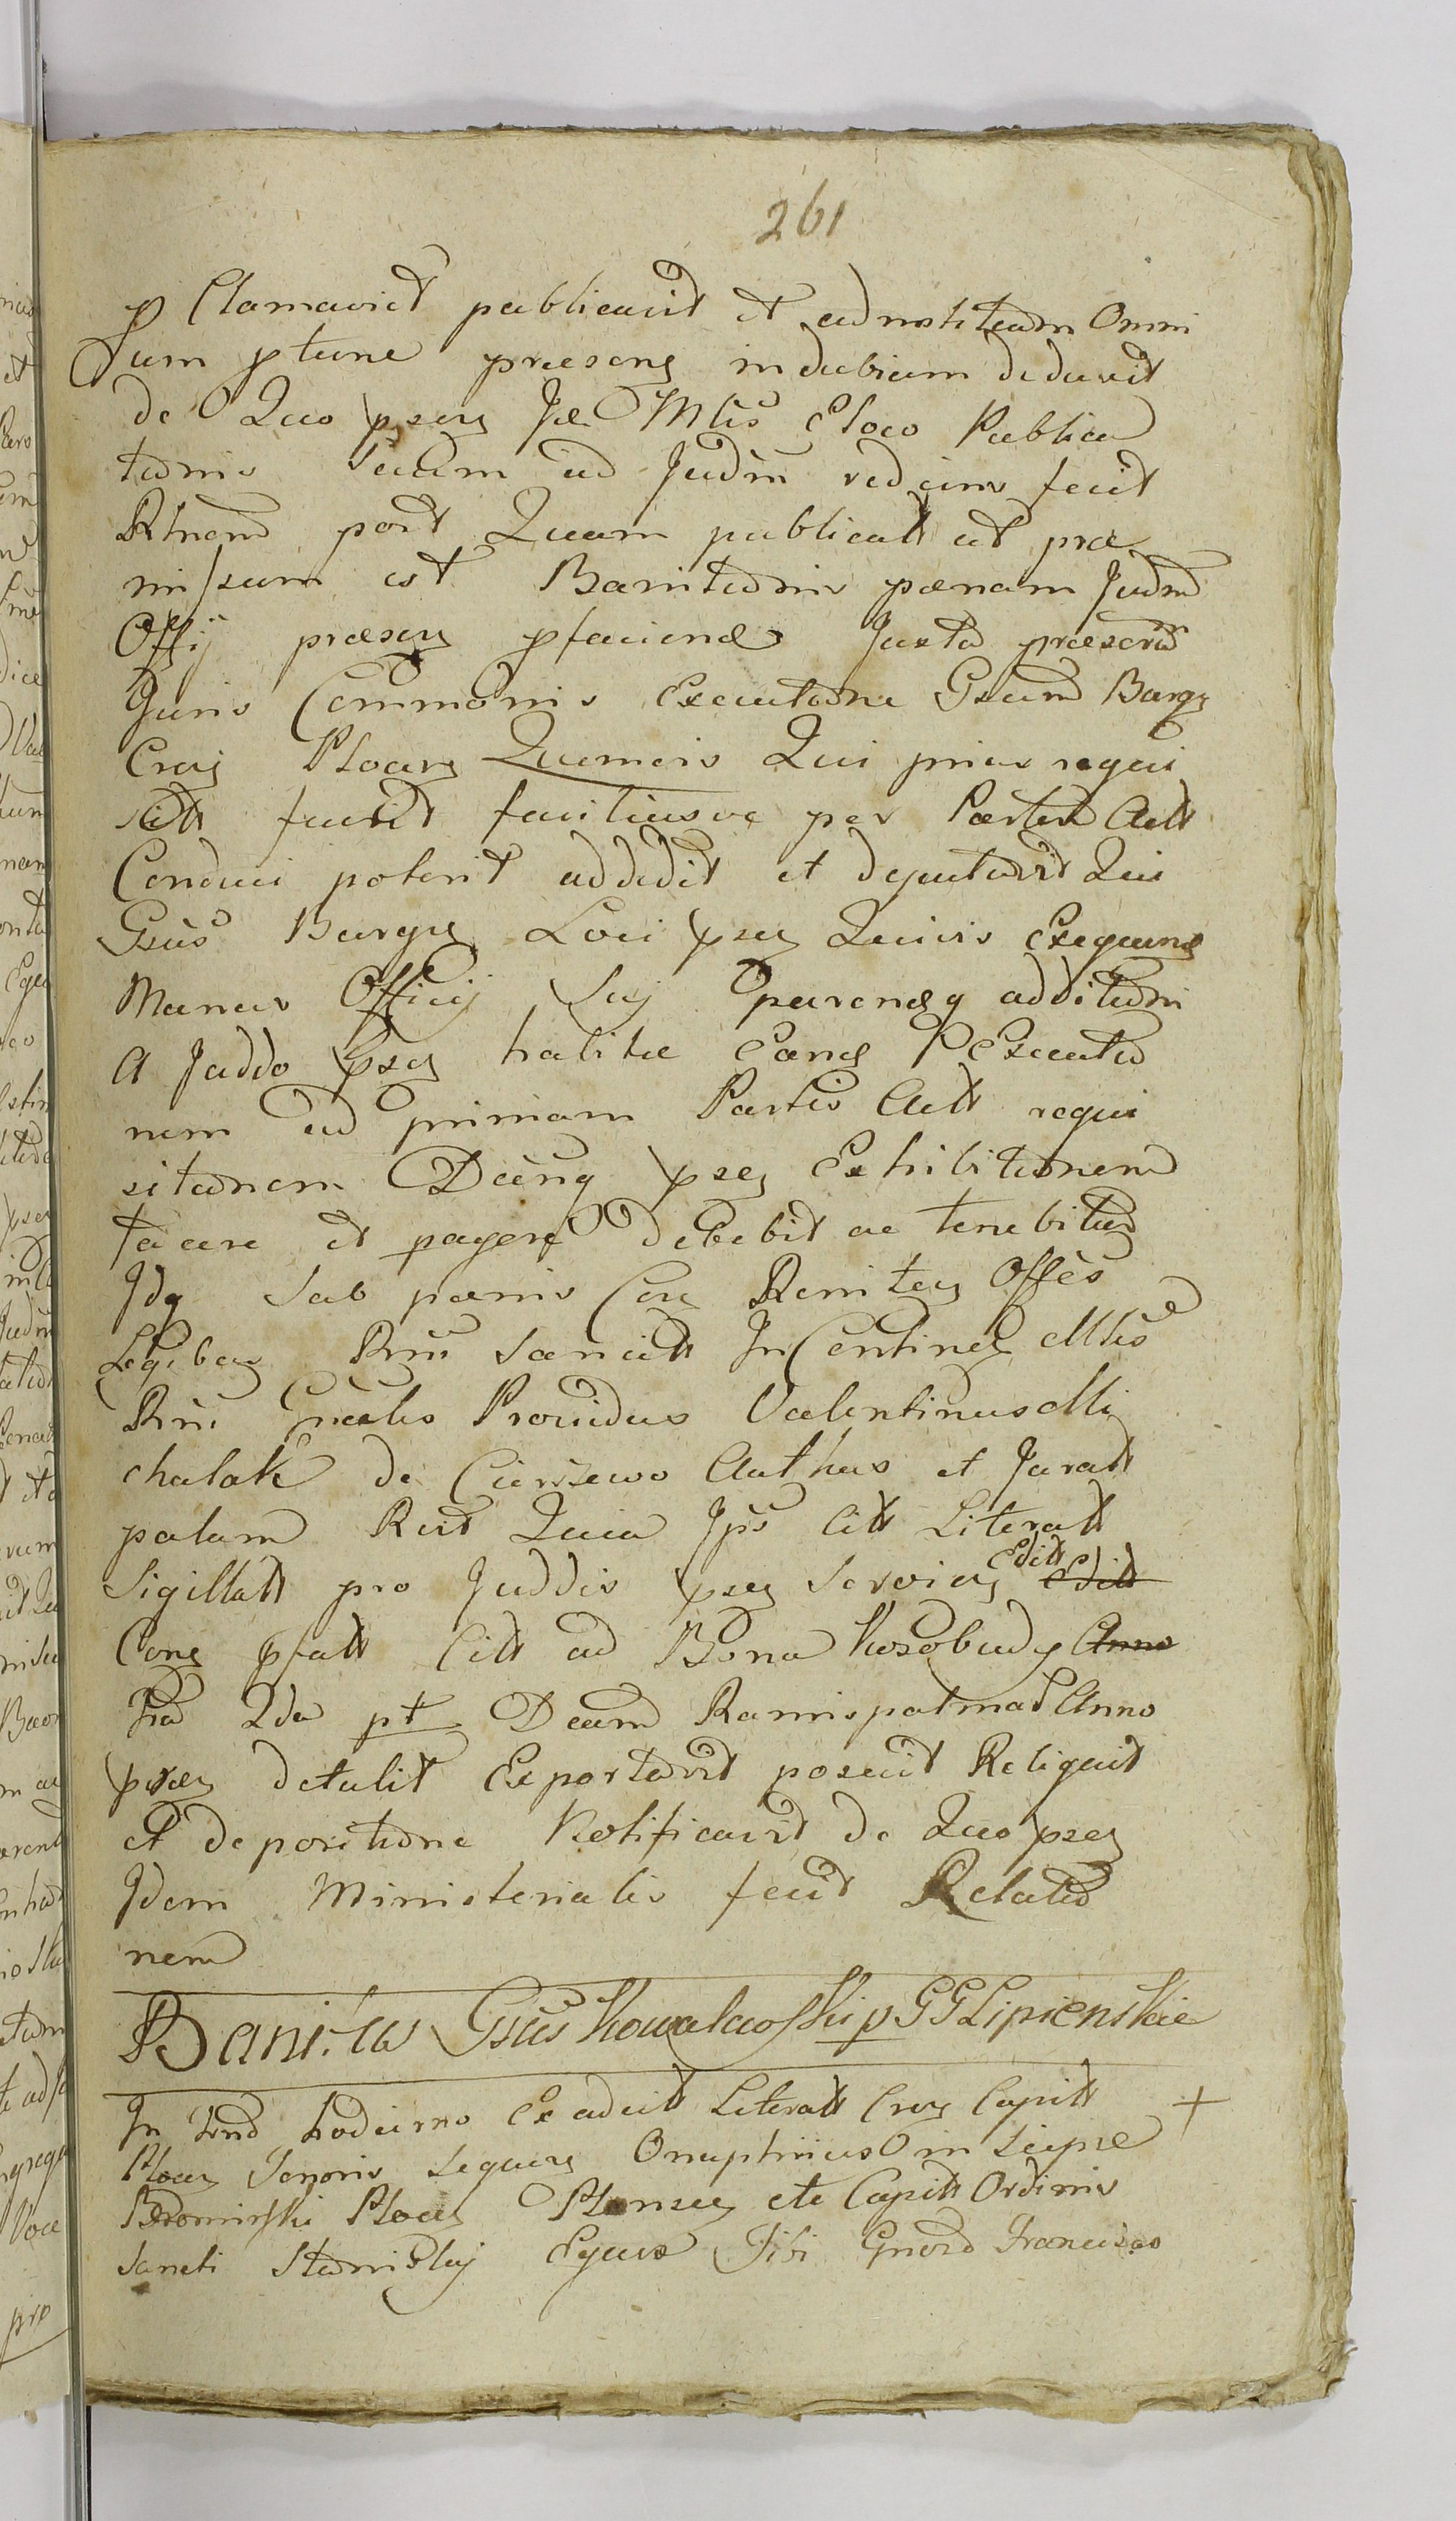 261
p Clamavit publicavit et ad notitiam Omni
um ptune præseng in dubium deduxit
de Quo pseng Je Mlis Eloco Publica
tionis Suum ad Judm rediens fecit
Rlnem post Quam publicatt ut præ
missum est Banitionis pænam Judm
Offij præseng pfaciend Juxta præscrm
Juris Commonis Executione Gsum Burg
Crag Ploceng Quemvis Qui prius requi
sitt fuerit faciliusve per Partem Actt
Conduci poterit addidit et deputavit Qui
Gsus Burgg Loci pseng Quivis Exequend
Munus Officij Suj parendq additioni
A Juddo pseng habitæ Eand Executio
nem ad primam Partis Actt requi
sitionem Deinq pseng Exhibitionem
facere et pagere debebit ac tenebitur
Idq Sub pænis Con Reniteng Offes
Legibus Rni Sancitt In Contineng Mlis
Rni Gnalis Providus Valentinus Mi
chalak de Ciarszewo Authus et Juratt
palam Rcit Quia Jps Citt Literatt
Sigillatt pro Juddis pseng Servieng Editt
Cong pfatt Citt ad Bona Kosobudy
Fria 2da pt Dcam Ramispalmar Anno
pseng detulit Exportavit posuit Reliquit
et de positione Notificavit de Quo pseng
Idem Ministerialis fecit Relatio
nem
Banitio Gsus Kowalewski p GG Lipienskie
In Trno hodierno Ex aducit Literatt Crag Capitt
Ploceng Tenoris Sequeng Onuphrius in Liepie
Bromirski Ploceng Plonseng etc Capitt Ordinis
Sancti Stanislaj Eques Tibi Gnero Francisco